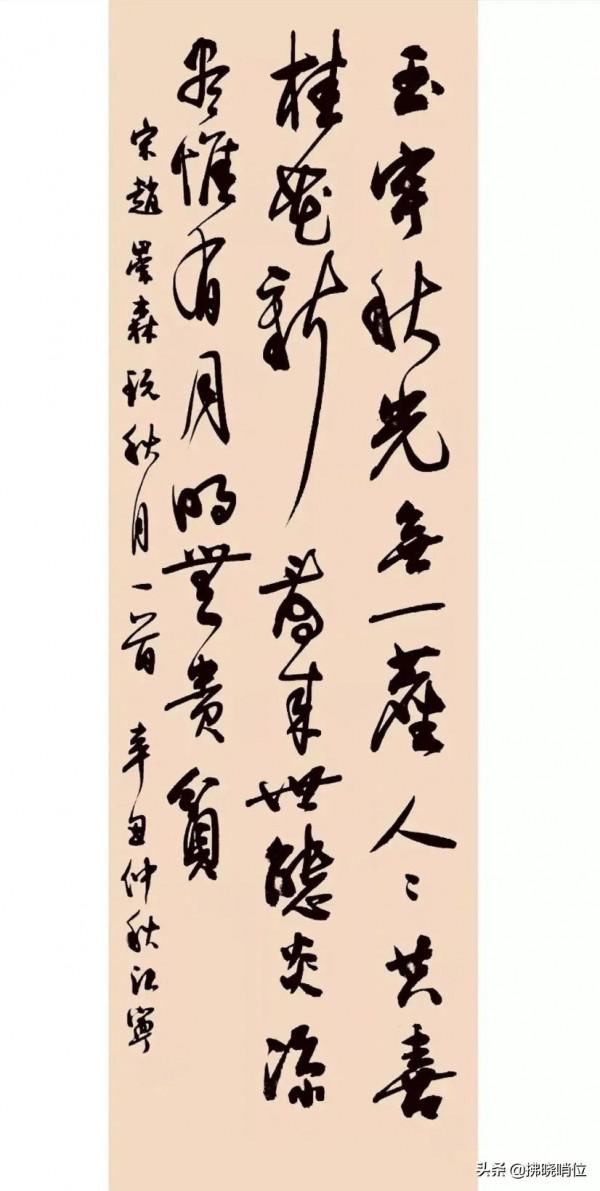 玉宇秋光無一塵人〻共喜
桂花新看來世態炎涼
尽惟有月明無貴貧
宋趙崇森玩秋月一首 辛丑仲秋江寧
头条 @拂晓哨位